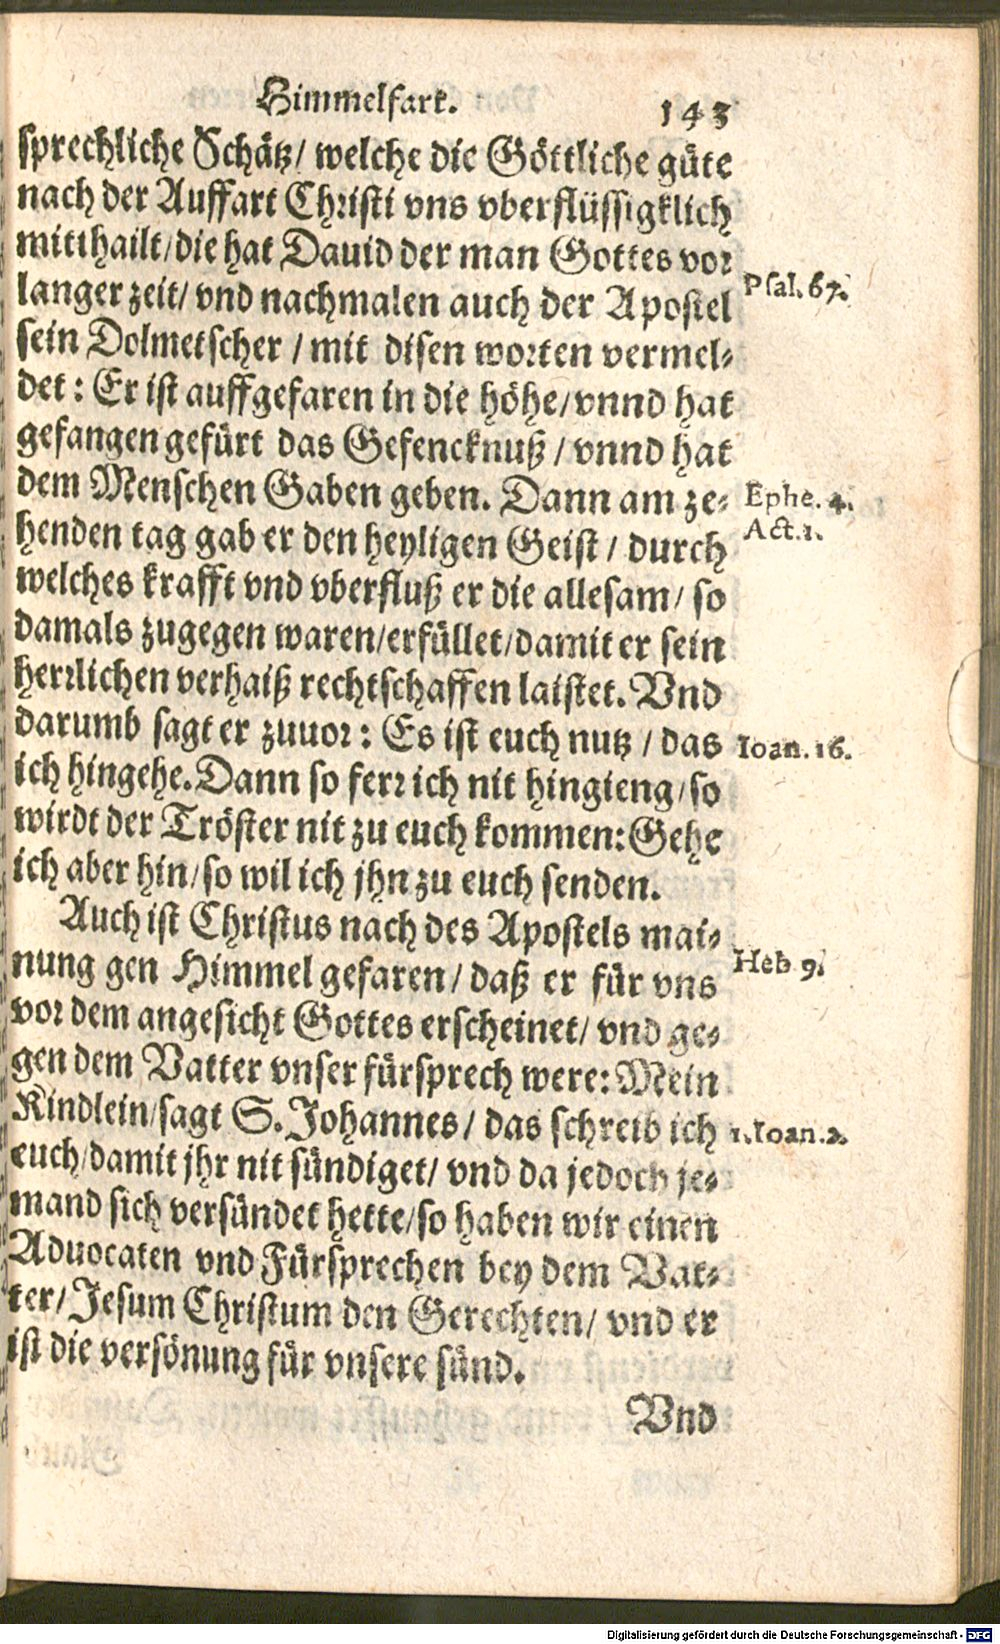 Himmelfart. 143
sprechliche Schätz/ welche die Göttliche güte
nach der Auffart Christi vns vberflüssigklich
mitthailt/die hat Dauid der man Gottes vor
langer zeit/ vnd nachmalen auch der Apostel
Psal. 67.
sein Dolmetscher / mit disen worten vermel-
det: Er ist auffgefaren in die höhe/vnnd hat
gefangen gefürt das Gefencknuß / vnnd hat
dem Menschen Gaben geben. Dann am ze-
Ephe. 4.
henden tag gab er den heyligen Geist / durch
Act.1.
welches krafft vnd vberfluß er die allesam/ so
damals zugegen waren/erfüllet/damit er sein
herrlichen verhaiß rechtschaffen laistet. Vnd
darumb sagt er zuuor: Es ist euch nutz / das
Ioan. 16.
ich hingehe. Dann so ferr ich nit hingieng/so
wirdt der Tröster nit zu euch kommen: Gehe
ich aber hin/so wil ich jhn zu euch senden.
Auch ist Christus nach des Apostels mai-
nung gen Himmel gefaren/ daß er für vns
Heb 9.
vor dem angesicht Gottes erscheinet/ vnd ge-
gen dem Vatter vnser fürsprech were: Mein
Kindlein/sagt S. Johannes/ das schreib ich
1.Ioan.2.
euch/damit jhr nit sündiget/ vnd da jedoch je-
mand sich versündet hette/so haben wir einen
Aduocaten vnd Fürsprechen bey dem Vat-
ter/ Jesum Christum den Gerechten/ vnd er
ist die versönung für vnsere sünd.
Vnd
Digitalisierung gefördert durch die Deutsche Forschungsgemeinschaft - DFG